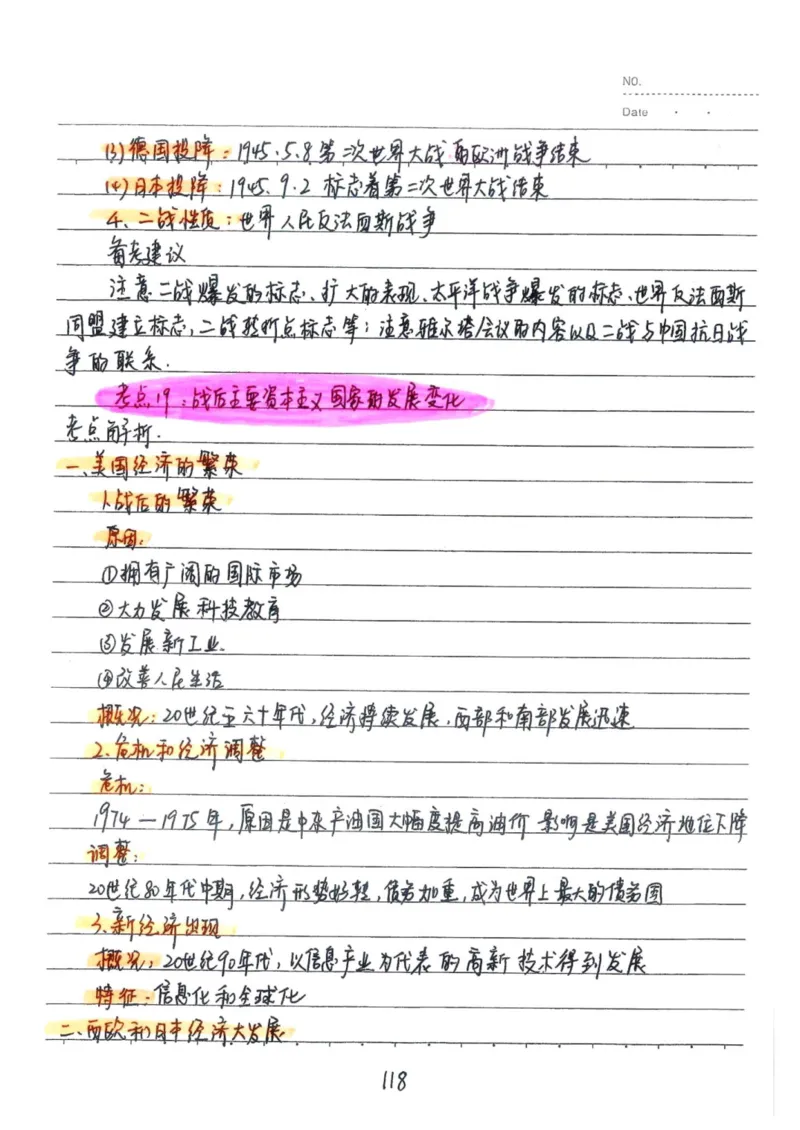 NO.
Date
(3)德国投降:1945.5.8 第二次世界大战的欧洲战争结束
(4)日本投降:1945.9.2 标志着第二次世界大战结束
4、二战性质:世界人民反法西斯战争
备考建议
注意二战爆发的标志、扩大的表现、太平洋战争爆发的标志、世界反法西斯
同盟建立标志,二战转折点标志等;注意雅尔塔会议的内容以及二战与中国抗日战
争的联系.
考点19:战后主要资本主义国家的发展变化
考点解析.
一、美国经济的繁荣
1、战后的繁荣
原因:
①拥有广阔的国际市场
②大力发展科技教育
③发展新工业.
④改善人民生活
概况:20世纪五六十年代,经济持续发展,西部和南部发展迅速
2、危机和经济调整
危机:
1974—1975年,原因是中东产油国大幅度提高油价 影响是美国经济地位下降
调整:
20世纪80年代中期,经济形势好转,债务加重,成为世界上最大的债务国
3、新经济出现
概况:20世纪90年代,以信息产业为代表的高新技术得到发展
特征:信息化和全球化
二、西欧和日本经济大发展
118